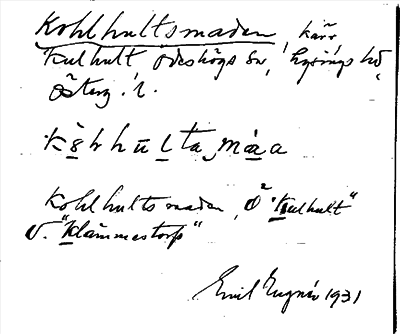 Kohlhultsmaden, kärr
Kulhult Ödeshögs sn, Lysings hd,
Österg. l.
Kålhulta,måa
Kohlhultsmaden, Ö "Kulhult"
V. "Klämmestorp"
Emil 1931